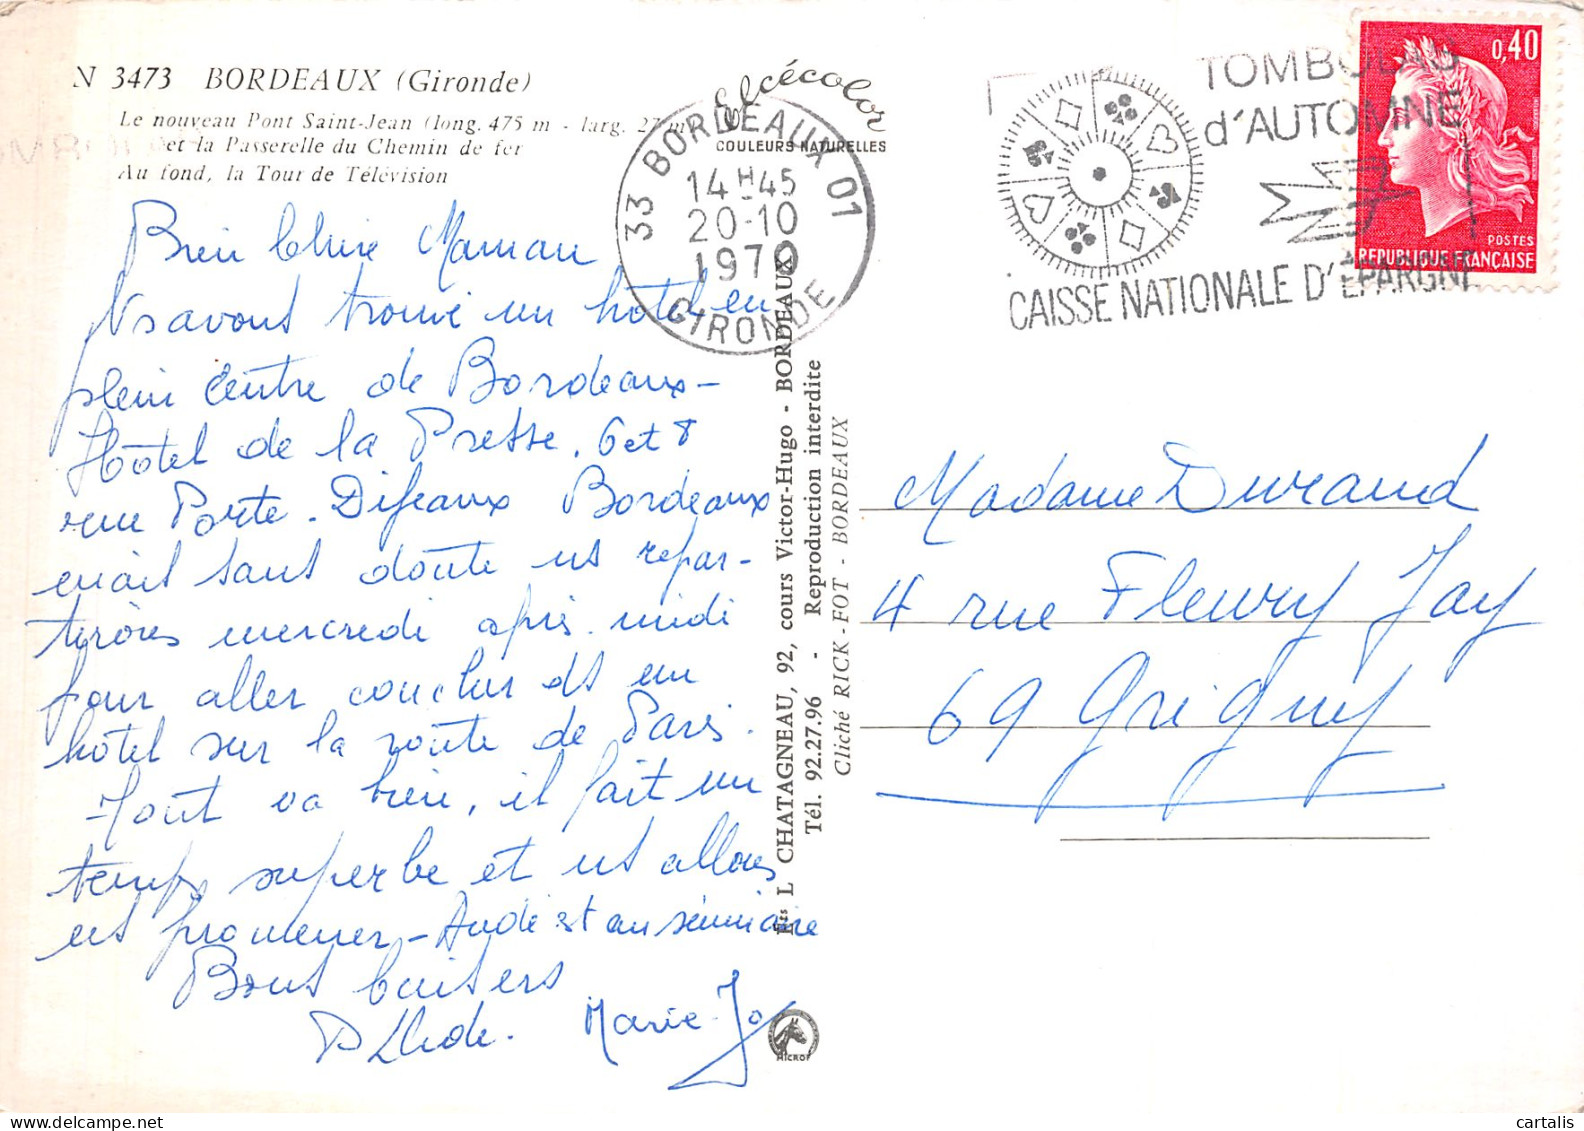 N 3473 BORDEAUX (Gironde)
Le nouveau Pont Saint-Jean (long. 475 m - larg. 27 m)
et la Passerelle du Chemin de fer
Au fond, la Tour de Télévision
Elcécolor
COULEURS NATURELLES
33 BORDEAUX 01
14H45
20-10
1970
GIRONDE
TOMBOLAS
d'AUTOMNE
CAISSE NATIONALE D'EPARGNE
0,40
POSTES
REPUBLIQUE FRANÇAISE
Bien Chère Maman
Ns avons trouvé un hotel en
plein Centre de Bordeaux -
Hôtel de la Presse. 6 et 8
rue Porte. Dijeaux Bordeaux
mais sans doute ns repar-
tirons mercredi après. midi
pour aller coucher ds un
hôtel sur la route de Paris.
Tout va bien, il fait un
temps superbe et ns allons
ns promener - est au séminaire
Bons baisers
Marie-Jo
Ets L CHATAGNEAU, 92, cours Victor-Hugo - BORDEAUX
Tél. 92.27.96 - Reproduction interdite
Cliché RICK-FOT - BORDEAUX
MICROF
Madame Durand
4 rue Fleury Jay
69 Grigny
cartalis